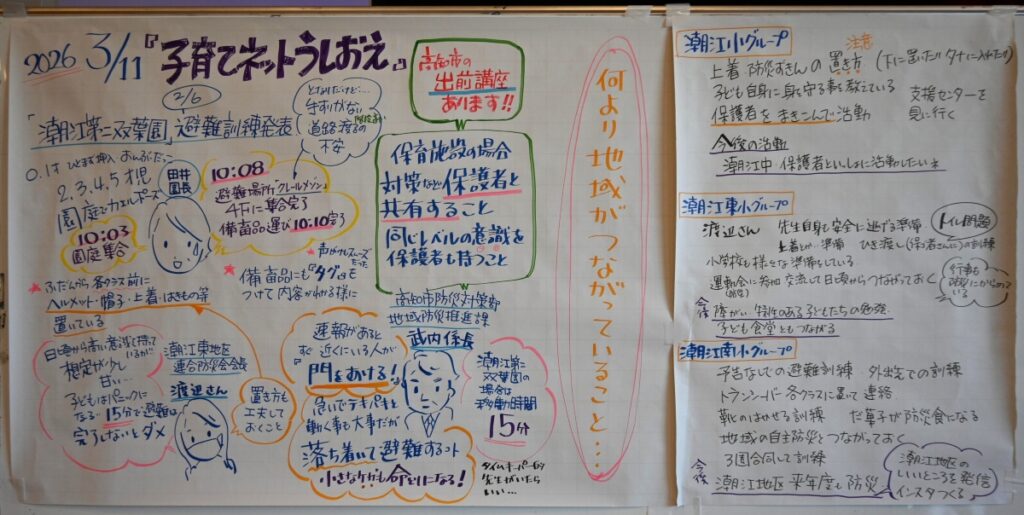 2026 3/11『子育てネットうしおえ』
2/6
『潮江第二双葉園』避難訓練発表
とはいえだけど…
手すりがない
道路渡るの
不安
0.1才 ひとまず押入 おんぶだっこ
2,3,4,5才児
園庭でカエルポーズ
10:03
園庭集合
田井
園長
10:08
避難場所「クレールメゾン」
4Fに集合完了
備蓄品運び 10:10完了
声かけスムーズ
だった
★ふだんから各クラス前に
ヘルメット・帽子・上着・はきもの等
置いている
★備蓄品にも『タグ』をも
つけて内容がわかる様に
日頃から高い意識を持って
いるが
想定が少し
甘い…
子どもはパニックに
なる…15分で避難は
完了しないとダメ
潮江東地区
連合防災会会長
渡辺さん
置き方も
工夫して
おくこと
高知市の
出前講座
あります!!
保育施設の場合
対策など保護者と
共有すること
同じレベルの意識を
保護者も持つこと
高知市防災対策部
地域防災推進課
武内係長
速報があると
近くにいる人が
『門をあける!』
急いでテキパキと
動く事も大事だが
落ち着いて避難するコト
小さなケガも命とりになる!
潮江第二
双葉園の
場合は
移動の時間
15分
タイムキーパー的な
先生がいたら
いい…
何より地域がつながっていること…
潮江小グループ
注意
上着・防災ずきんの置き方(下に置いたりタナに入れたり)
子ども自身に身を守る事を教えている
支援センターを
見に行く
保護者をまきこんで活動
今後の活動
潮江中・保護者といっしょに活動したいネ
潮江東小グループ
トイレ問題
渡辺さん 先生自身も安全に逃げる準備
上着とか準備 ひき渡し(保ゴ者さんに)の訓練
小学校も様々な準備をしている
運動会に参加 交流して日頃からつなげておく
行事も
防災にからめて
いる
今後 障がい・特性のある子どもたちの勉強
子ども食堂ともつながる
潮江南小グループ
予告なしでの避難訓練 外出先での訓練
トランシーバー各クラスに置いて連絡
靴のはかせる訓練 だ菓子が防災食になる
地域の自主防災とつながっておく
3園合同して訓練
今後
潮江地区 来年度も防災
潮江地区の
いいところを発信
インスタつくる